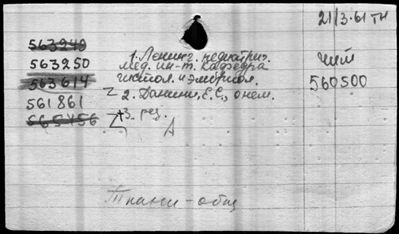 21/3-61 тн
563240
563250
563614
561861
565456
1. Ленинг. педиатрич.
мед. ин-т. Кафедра
гистол. и эмбриол.
2. Данини, Е.С., о нем.
3. рез.
А
чит
560500
Ткани - общ